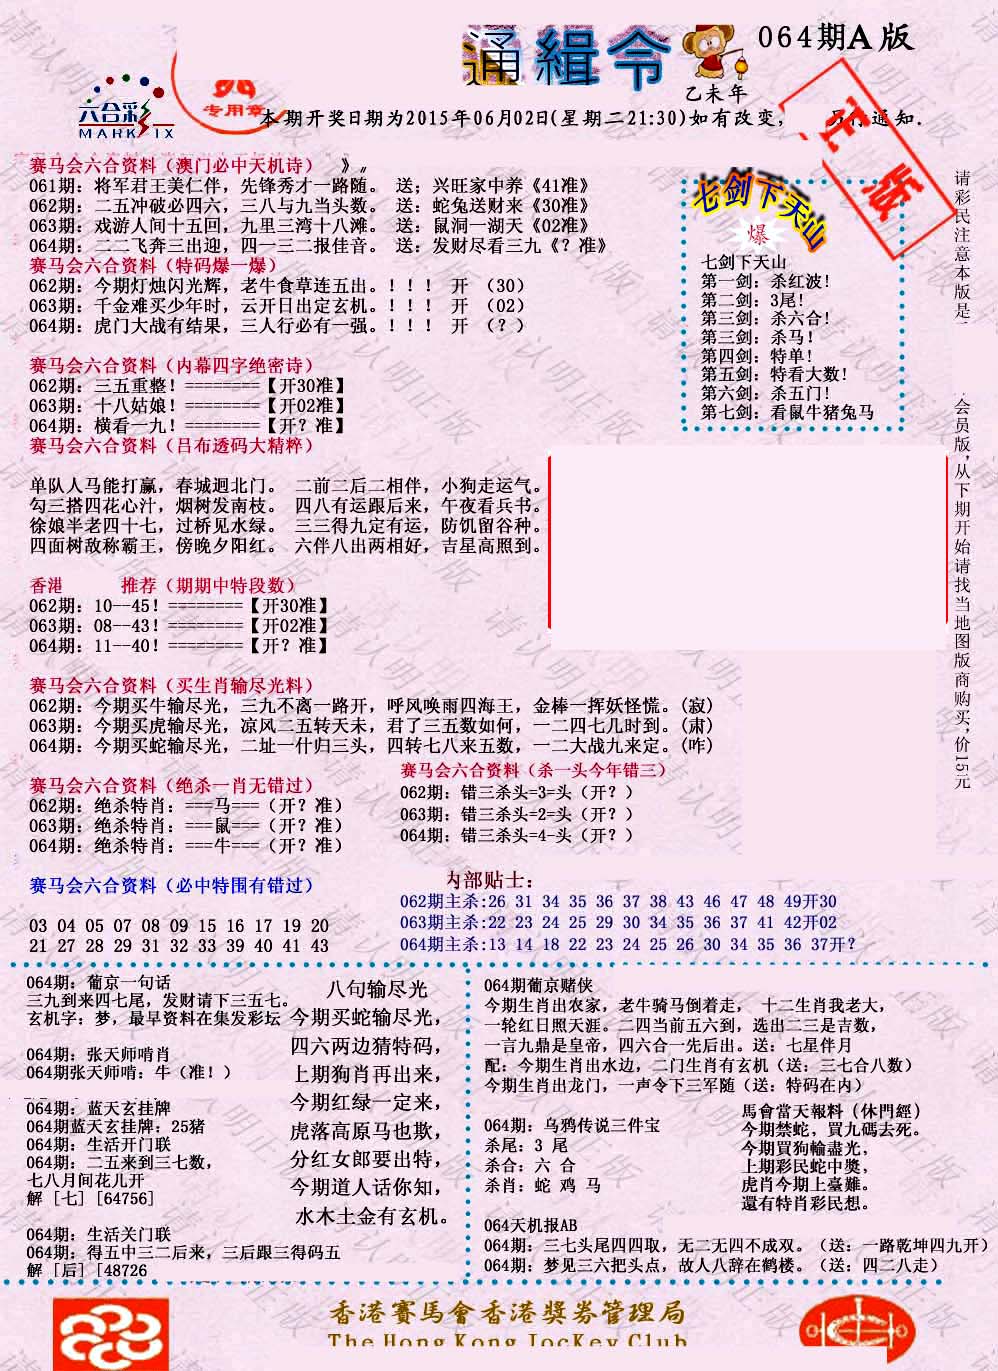 通緝令
064期A版
乙未年
六合彩
MARK SIX
专用章
本期开奖日期为2015年06月02日(星期二21:30)如有改变,
通知.
赛马会六合资料（澳门必中天机诗） 》
061期：将军君王美仁伴，先锋秀才一路随。 送；兴旺家中养《41准》
062期：二五冲破必四六，三八与九当头数。 送：蛇兔送财来《30准》
063期：戏游人间十五回，九里三湾十八滩。 送：鼠洞一湖天《02准》
064期：二二飞奔三出迎，四一三二报佳音。 送：发财尽看三九《？准》
赛马会六合资料（特码爆一爆）
062期：今期灯烛闪光辉，老牛食草连五出。！！！ 开 （30）
063期：千金难买少年时，云开日出定玄机。！！！ 开 （02）
064期：虎门大战有结果，三人行必有一强。！！！ 开 （？）
赛马会六合资料（内幕四字绝密诗）
062期：三五重整！========【开30准】
063期：十八姑娘！========【开02准】
064期：横看一九！========【开？准】
赛马会六合资料（吕布透码大精粹）
单队人马能打赢，春城迥北门。 二前二后二相伴，小狗走运气。
勾三搭四花心汁，烟树发南枝。 四八有运跟后来，午夜看兵书。
徐娘半老四十七，过桥见水绿。 三三得九定有运，防饥留谷种。
四面树敌称霸王，傍晚夕阳红。 六伴八出两相好，吉星高照到。
七剑下天山
爆
七剑下天山
第一剑：杀红波！
第二剑：3尾！
第三剑：杀六合！
第三剑：杀马！
第四剑：特单！
第五剑：特看大数！
第六剑：杀五门！
第七剑：看鼠牛猪兔马
请彩民注意本版是
会员版，从下期开始请找当地图版商购买，价15元
香港 推荐（期期中特段数）
062期：10--45！========【开30准】
063期：08--43！========【开02准】
064期：11--40！========【开？准】
赛马会六合资料（买生肖输尽光料）
062期：今期买牛输尽光，三九不离一路开，呼风唤雨四海王，金棒一挥妖怪慌。(寂)
063期：今期买虎输尽光，凉风二五转天未，君了三五数如何，一二四七几时到。(肃)
064期：今期买蛇输尽光，二址一什归三头，四转七八来五数，一二大战九来定。(咋)
赛马会六合资料（绝杀一肖无错过）
062期：绝杀特肖：===马===（开？准）
063期：绝杀特肖：===鼠===（开？准）
064期：绝杀特肖：===牛===（开？准）
赛马会六合资料（杀一头今年错三）
062期：错三杀头=3=头（开？）
063期：错三杀头=2=头（开？）
064期：错三杀头=4-头（开？）
赛马会六合资料（必中特围有错过）
03 04 05 07 08 09 15 16 17 19 20
21 27 28 29 31 32 33 39 40 41 43
内部贴士：
062期主杀:26 31 34 35 36 37 38 43 46 47 48 49开30
063期主杀:22 23 24 25 29 30 34 35 36 37 41 42开02
064期主杀:13 14 18 22 23 24 25 26 30 34 35 36 37开?
064期：葡京一句话
三九到来四七尾，发财请下三五七。
玄机字：梦，最早资料在集发彩坛
064期：张天师啃肖
064期张天师啃：牛（准！）
064期：蓝天玄挂牌
064期蓝天玄挂牌：25猪
064期：生活开门联
064期：二五来到三七数，
七八月间花儿开
解 [七] [64756]
064期：生活关门联
064期：得五中三二后来，三后跟三得码五
解 [后] [48726
八句输尽光
今期买蛇输尽光，
四六两边猜特码，
上期狗肖再出来，
今期红绿一定来，
虎落高原马也欺，
分红女郎要出特，
今期道人话你知，
水木土金有玄机。
064期葡京赌侠
今期生肖出农家，老牛骑马倒着走， 十二生肖我老大，
一轮红日照天涯。二四当前五六到，选出二三是吉数，
一言九鼎是皇帝，四六合一先后出。送：七星伴月
配：今期生肖出水边，二门生肖有玄机（送：三七合八数）
今期生肖出龙门，一声令下三军随（送：特码在内）
064期：乌鸦传说三件宝
杀尾：3 尾
杀合：六 合
杀肖：蛇 鸡 马
馬會當天報料（休門經）
今期禁蛇，買九碼去死。
今期買狗輸盡光，
上期彩民蛇中獎，
虎肖今期上臺難。
還有特肖彩民想。
064天机报AB
064期：三七头尾四四取，无二无四不成双。（送：一路乾坤四九开）
064期：梦见三六把头点，故人八辞在鹤楼。（送：四二八走）
香港賽馬會香港獎券管理局
The Hong Kong Jockey Club